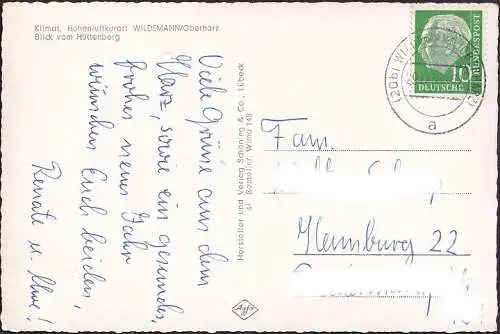 Klimat. Höhenluftkurort WILDEMANN/Oberharz
Blick vom Hüttenberg
Viele Grüße aus dem
Harz, sowie ein gesundes,
frohes neues Jahr
wünschen Euch beiden,
Renate u. Uwe!
Hersteller und Verlag Schöning & Co., Lübeck
Bestellnr. Wilma 148
Agfa
(20b) WILDEMANN
a
10
DEUTSCHE
BUNDESPOST
Fam.
Hamburg 22